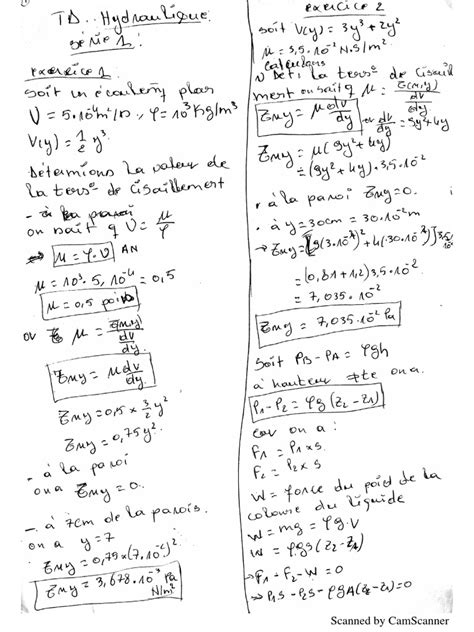 TD.. Hydraulique.
série 1 :
exercice 1
Soit un écoulement plan
V = 5.10⁻⁴ m²/s , φ = 10³ kg/m³
V(y) = 1/2 y³.
Déterminons la valeur de
la tens° de Cisaillement
- à la paroi
on sait q V = μ/φ
⇒ μ = φ.V AN
μ = 10³. 5, 10⁻⁴ = 0,5
μ = 0,5 pois
or μ = τxy / (dv/dy)
τxy = μ dv/dy
τxy = 0,5 × 3/2 y²
τxy = 0,75 y².
- à la paroi
on a τxy = 0.
- à 7cm de la parois.
on a y = 7
τxy = 0,75 × (7.10⁻²)²
τxy = 3,678.10⁻³ Pa N/m²
exercice 2
soit V(y) = 3y³ + 2y²
μ = 3,5.10⁻² N.S/m²
calculons
1) Dét. la tens° de Cisaill
ment on sait q μ = τ(x,y) / (dv/dy)
τxy = μ dv/dy or dv/dy = 9y² + 4y
τxy = μ(9y² + 4y)
= (9y² + 4y).3,5.10⁻²
. à la paroi τxy = 0.
. à y = 30cm = 30.10⁻² m
→ τxy = [9(3.10⁻¹)² + 4(30.10⁻²)] 3,5/10²
= (0,81 + 1,2) 3,5.10⁻²
= 7,035.10⁻²
τxy = 7,035.10⁻² Pa
Soit PB - PA = φgh
à hauteur on a.
P₁ - P₂ = φg (Z₂ - Z₁)
car on a :
F₁ = P₁ × S.
F₂ = P₂ × S.
W = force du poid de la
colonne du liquide
W = mg = φg.V
W = φgs (Z₂ - Z₁)
→ F₁ - F₂ - W = 0
→ P₁S - P₂S - φgA(Z₂ - Z₁) = 0
Scanned by CamScanner